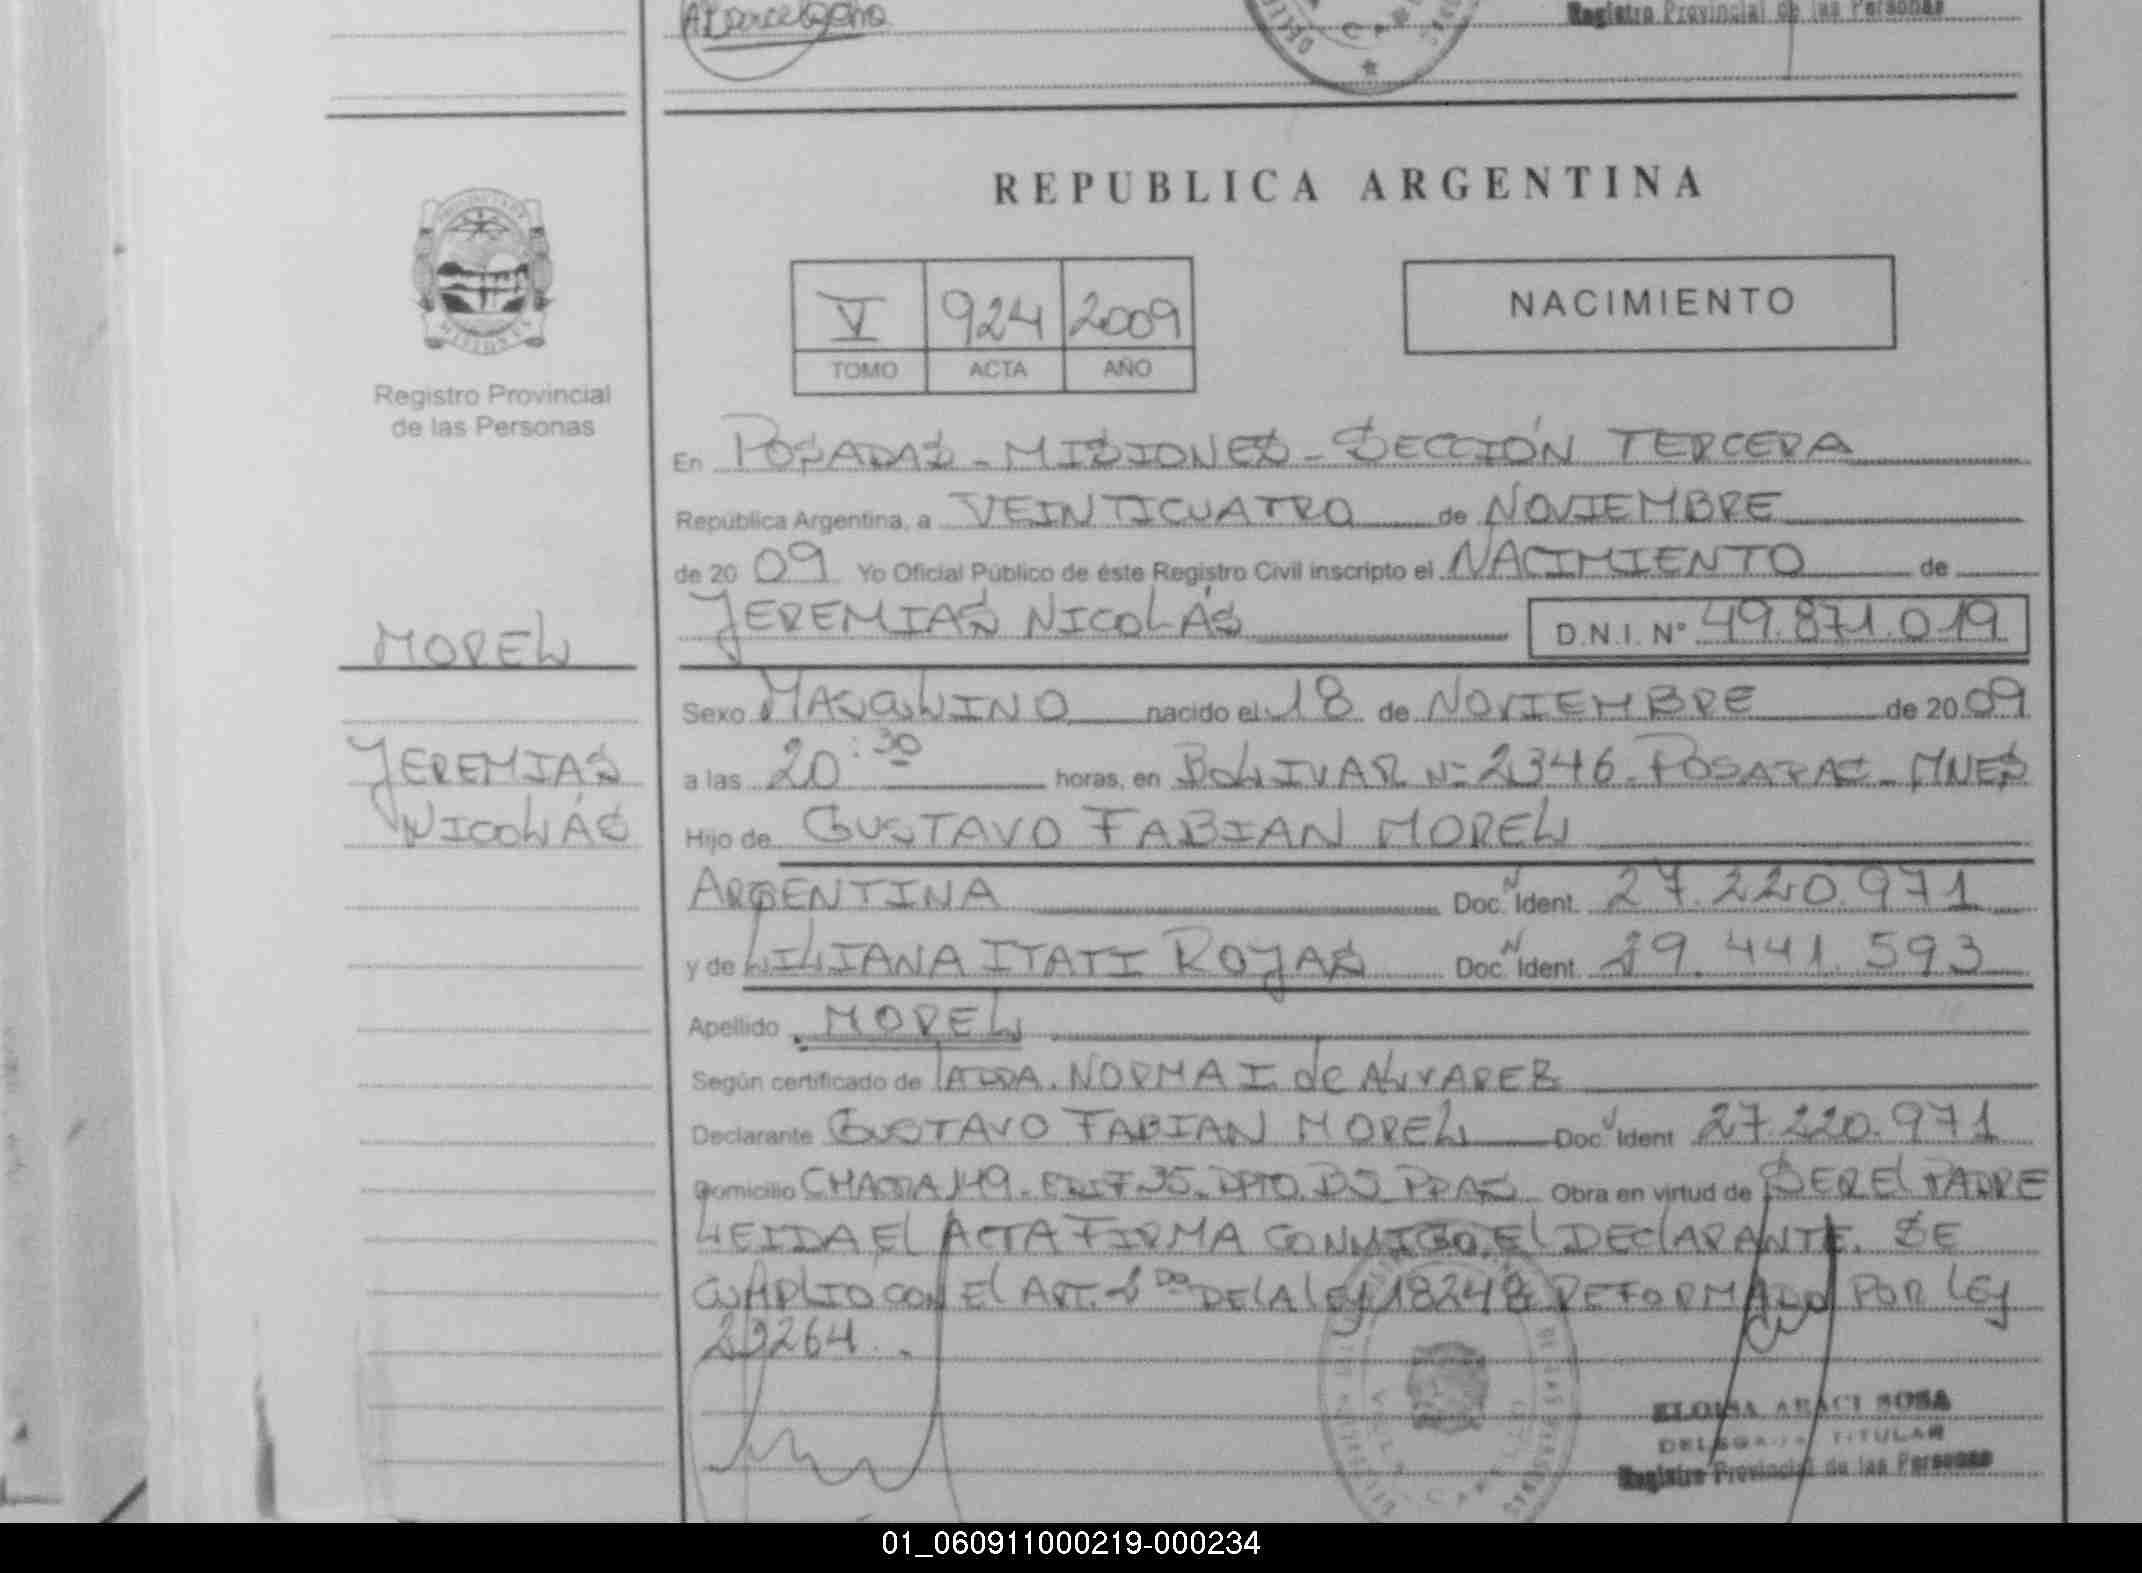 Registro Provincial de las Personas
REPUBLICA ARGENTINA
V 924 2009
TOMO ACTA AÑO
NACIMIENTO
Registro Provincial
de las Personas
En POSADAS - MISIONES - SECCIÓN TERCERA
República Argentina, a VEINTICUATRO de NOVIEMBRE
de 20 09 Yo Oficial Público de éste Registro Civil inscripto el NACIMIENTO de
JEREMIAS NICOLÁS D.N.I. Nº 49.871.019
MOREL
Sexo MASCULINO nacido el 18 de NOVIEMBRE de 20 09
JEREMIAS
a las 20:30 horas, en BOLIVAR Nº 2346 - POSADAS - MNES
NICOLÁS
Hijo de GUSTAVO FABIAN MOREL
ARGENTINA Doc. Ident. 27.220.971
y de LILIANA ITATI ROJAS Doc. Ident. 29.441.593
Apellido MOREL
Según certificado de NORMA I. de ALVAREZ
Declarante GUSTAVO FABIAN MOREL Doc. Ident 27.220.971
Domicilio CHACRA 149 - EDIF 35 - DPTO. PDAS Obra en virtud de SER EL PADRE
LEIDA EL ACTA FIRMA CONMIGO EL DECLARANTE. SE
CUMPLIO CON EL ART. 2DO DE LA LEY 18248 REFORMADO POR LEY
23264.
ELOISA ARACI SOSA
DELEGADA TITULAR
Registro Provincial de las Personas
01_060911000219-000234